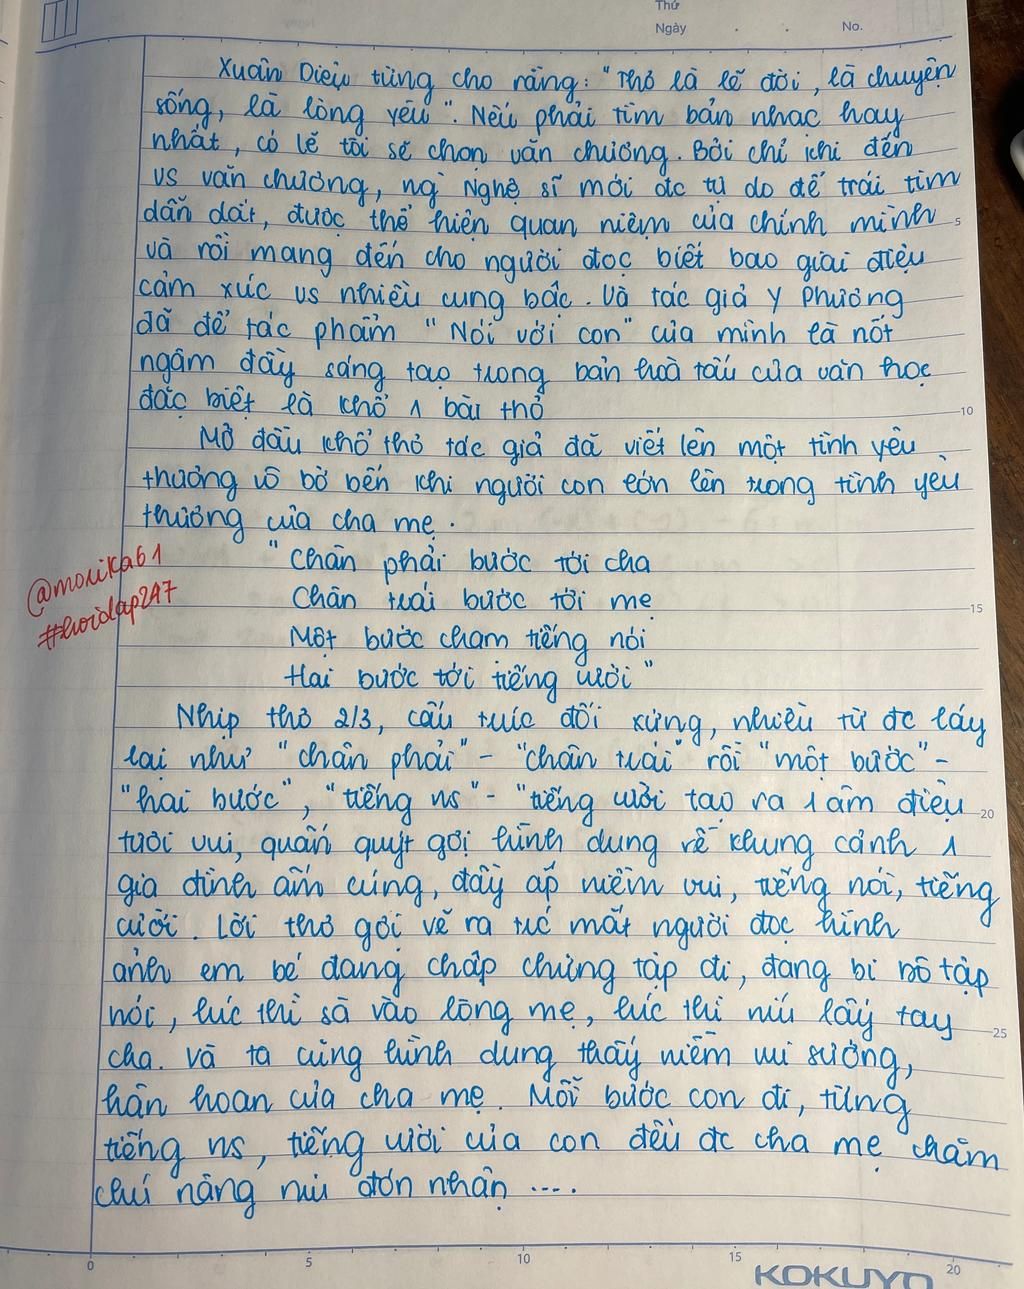 Thứ
Ngày . . No.
Xuân Diệu từng cho rằng: "Thơ là lẽ đời, là chuyện
sống, là lòng yêu". Nếu phải tìm bản nhạc hay
nhất, có lẽ tôi sẽ chọn văn chương. Bởi chỉ khi đến
vs văn chương, ng` Nghệ sĩ mới đc tự do để trái tim
dẫn dắt, được thể hiện quan niệm của chính mình
và rồi mang đến cho người đọc biết bao giai điệu
cảm xúc vs nhiều cung bậc. Và tác giả Y Phương
đã để tác phẩm "Nói với con" của mình là nốt
ngâm đầy sáng tạo trong bản hoà tấu của văn học
đặc biệt là khổ 1 bài thơ
Mở đầu khổ thơ tác giả đã viết lên một tình yêu
thương vô bờ bến khi người con lớn lên trong tình yêu
thương của cha mẹ.
"Chân phải bước tới cha
Chân trái bước tới mẹ
Một bước chạm tiếng nói
Hai bước tới tiếng cười"
@morika61
#hoidap247
Nhịp thơ 2/3, cấu trúc đối xứng, nhiều từ đc láy
lại như "chân phải" - "chân trái" rồi "một bước" -
"hai bước", "tiếng ns" - "tiếng cười tạo ra 1 âm điệu
tươi vui, quấn quýt gợi hình dung về khung cảnh 1
gia đình ấm cúng, đầy ắp niềm vui, tiếng nói, tiếng
cười. Lời thơ gợi vẽ ra trc mắt người đọc hình
ảnh em bé đang chập chững tập đi, đang bi bô tập
nói, lúc thì sà vào lòng mẹ, lúc thì níu lấy tay
cha. Và ta cũng hình dung thấy niềm vui sướng,
hân hoan của cha mẹ. Mỗi bước con đi, từng
tiếng ns, tiếng cười của con đều đc cha mẹ chăm
chú nâng niu đón nhận ....
5
10
15
20
25
0 5 10 15 20
KOKUYO